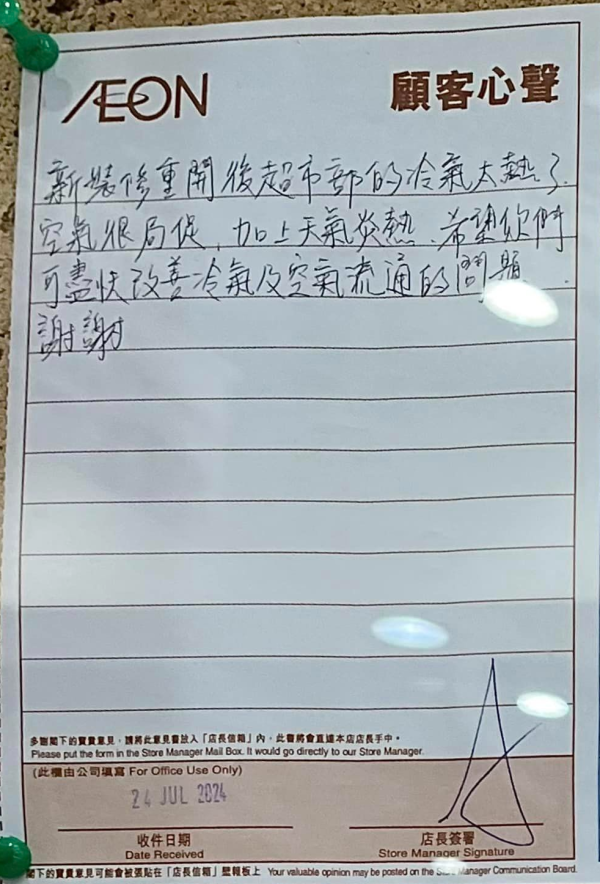 ÆON
顧客心聲
新裝修重開後超市部的冷氣太熱了.
空氣很局促, 加上天氣炎熱. 希望你們
可盡快改善冷氣及空氣流通的問題.
謝謝
多謝閣下的寶貴意見,請將此意見書放入「店長信箱」內,此書將會直達本店店長手中。
Please put the form in the Store Manager Mail Box. It would go directly to our Store Manager.
(此欄由公司填寫 For Office Use Only)
24 JUL 2024
收件日期
Date Received
店長簽署
Store Manager Signature
閣下的寶貴意見可能會被張貼在「店長信箱」壁報板上 Your valuable opinion may be posted on the Store Manager Communication Board.